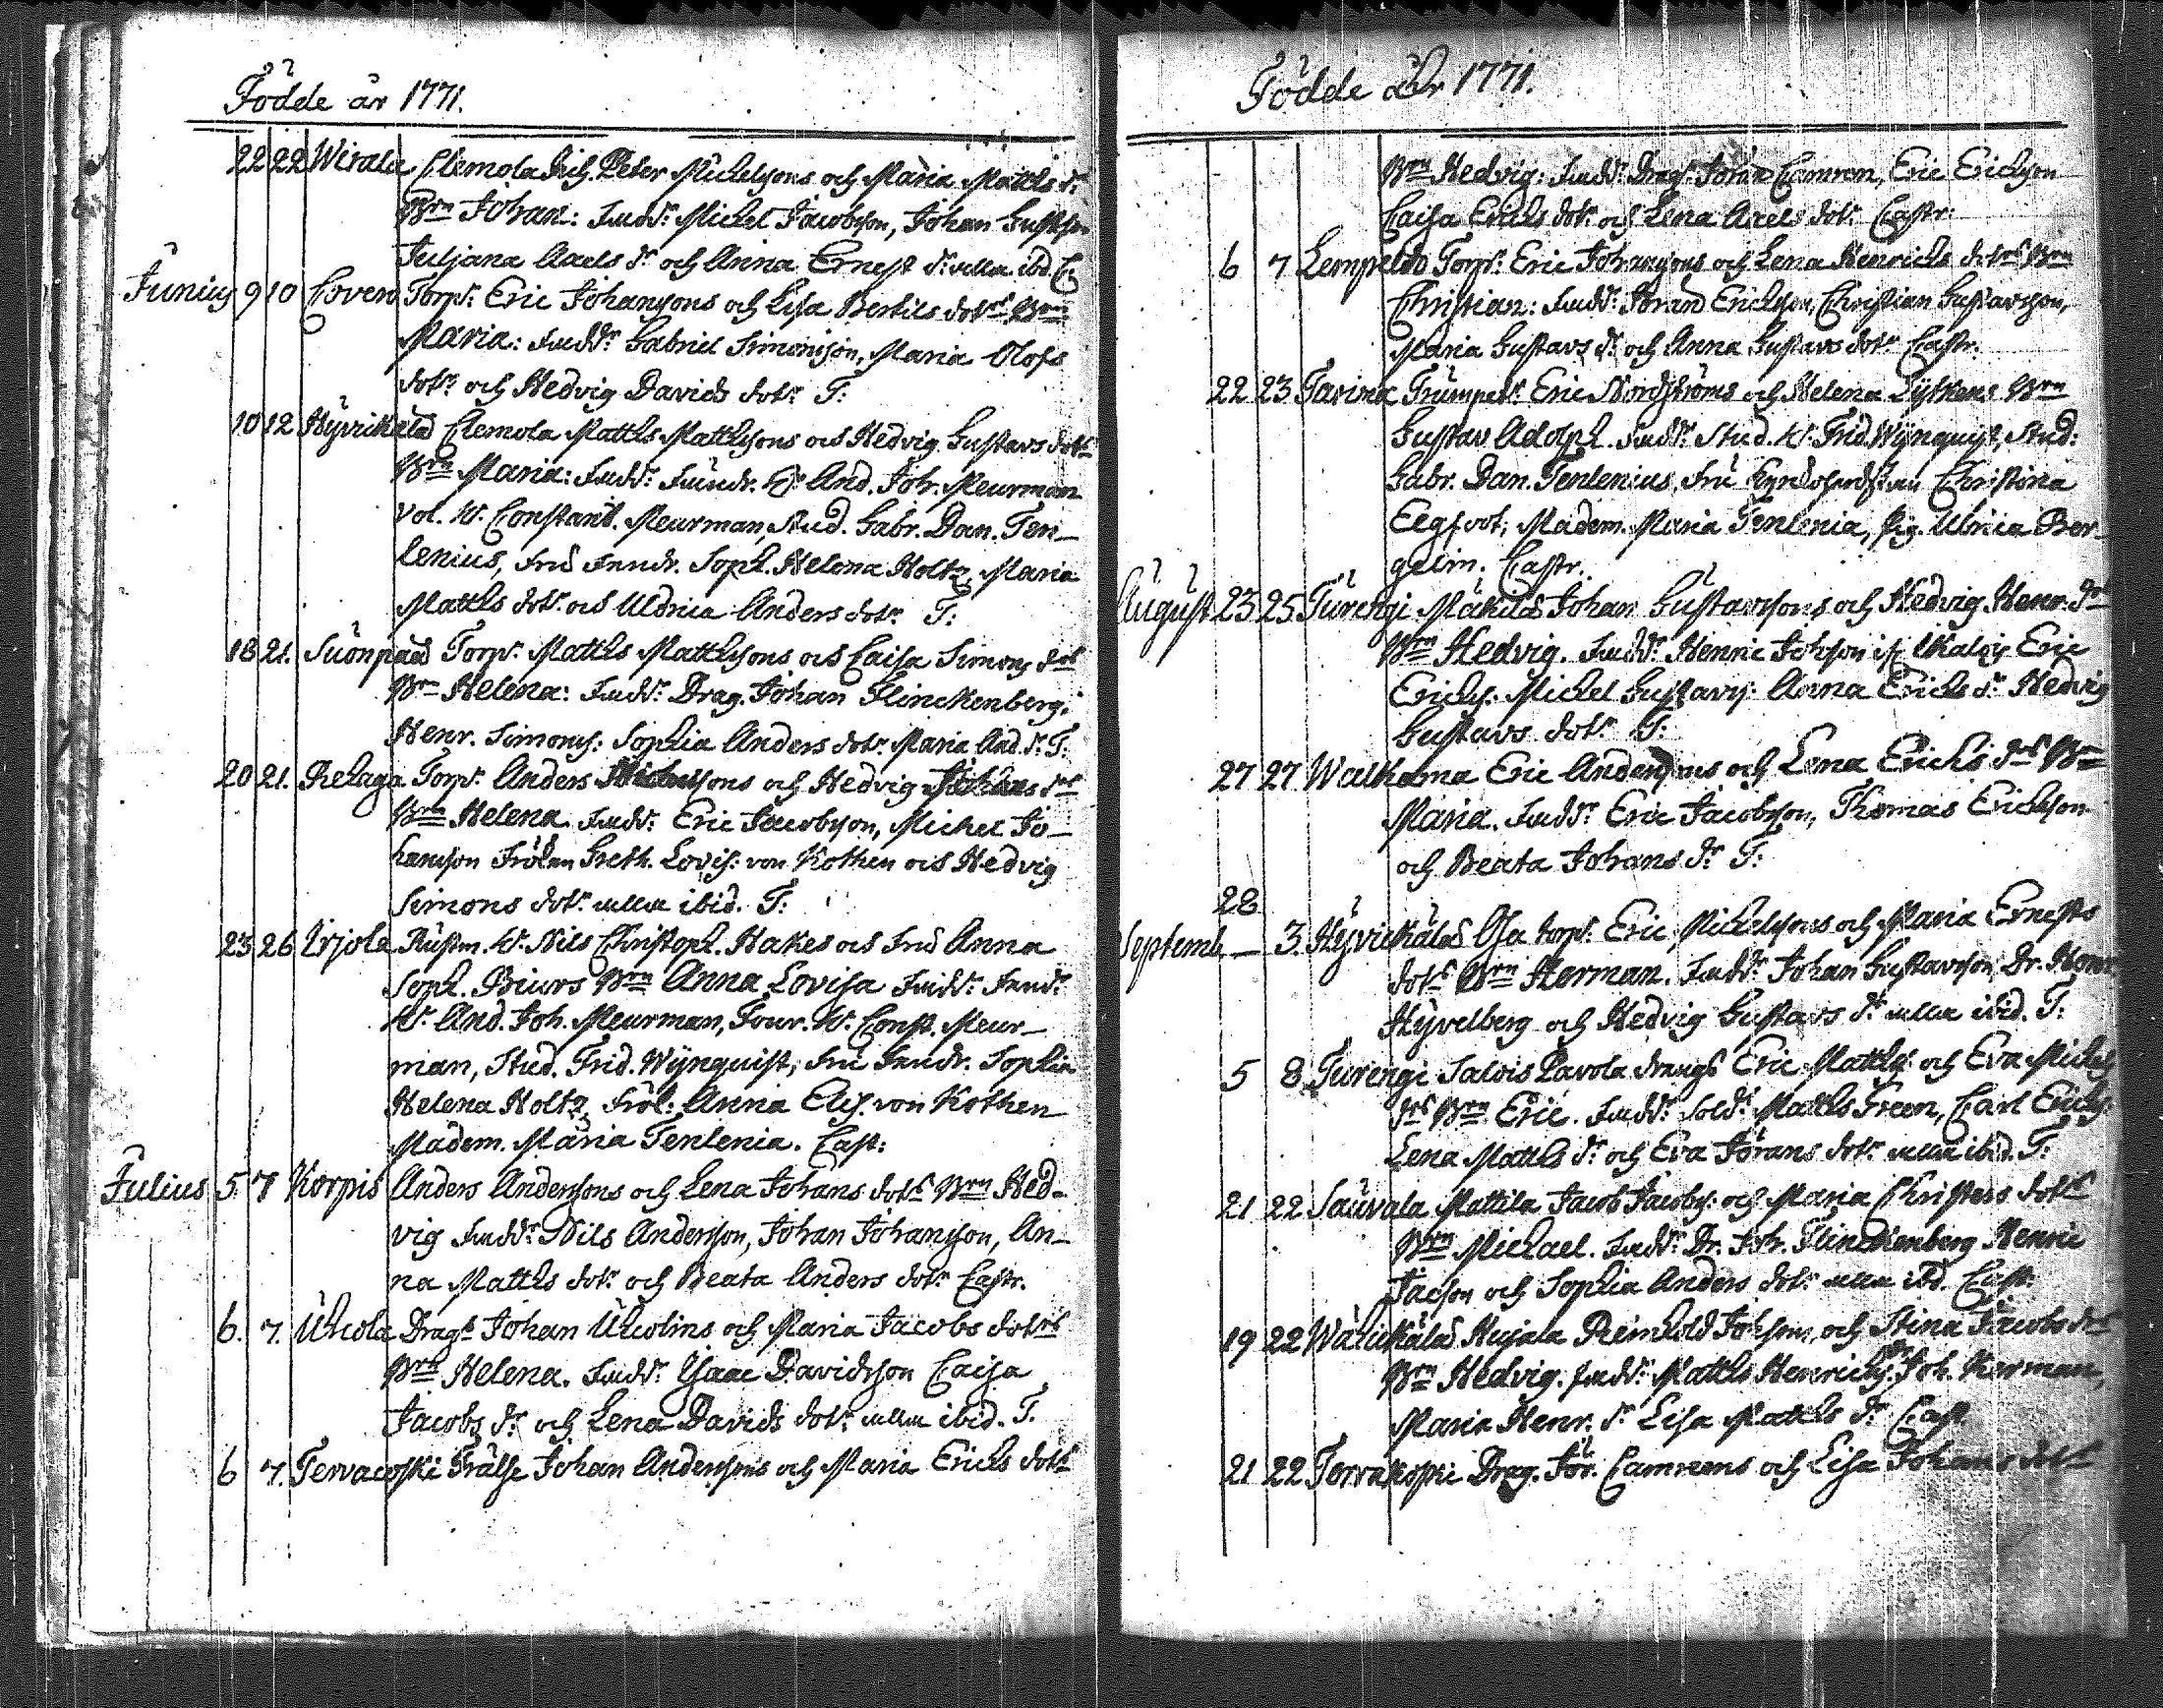 Födde år 1771.
22 22 Wirala Clemola Erich Peter Michelsons och Maria Matths dr
Brn Johan: Fadd: Michel Jacobsson, Johan Gustfson
Juljana Axels dr och Anna Ernest dr ibid. C:
Junius 9 10 Coveró Torp: Eric Johansons och Lisa Bertils dotrs Brn
Maria: Fadd: Gabriel Simonsson, Maria Olofs
dotr och Hedvig Davids dotr T:
10 12 Hyvickälä Clemola Matths Matthsons och Hedvig Gustavs dotrs
Brn Maria: Fadd: Fendr. Hr And. Joh. Meurman
vol. Hr Constant. Meurman, Stud. Gabr. Dan. Ten-
lenius, Fru Fendr. Soph. Helena Holtz, Maria
Matths dotr och Uldrica Anders dotr T:
18 21. Suonpää Torp: Matths Matthsons och Caisa Simons dotrs
Brn Helena: Fadd: Drag. Johan Flinckenberg,
Henr. Simons: Sophia Anders dotr Maria And. dr T:
20 21. Pelaga Torp: Anders och Hedvig drs
Brn Helena. Fadd: Eric Jacobsson, Michel Jo-
hansson Fröken Greth. Lovis: von Kothen och Hedvig
Simons dotr ibid. T:
23 26 Urjola Rustm. Hr Nils Christoph. Hakes och Fru Anna
Soph. Brn Anna Lovisa Fadd: Fend:
Hr And. Joh. Meurman, Four. Hr Const. Meur-
man, Stud. Frid. Wynquist, Fru Fendr. Sophia
Helena Holtz, Fröl: Anna Elis. von Kothen
Madem. Maria Tenlenia. Cast:
Julius 5 7 Korpis Anders Anderssons och Lena Johans dotrs Brn Hed-
vig Fadd: Nils Andersson, Johan Johansson, An-
na Matths dotr och Beata Anders dotr Castr.
6. 7. Uhcola Drag: Johan Uhcolins och Maria Jacobs dotrs
Brn Helena. Fadd: Isaac Davidsson Caisa
Jacobs dr och Lena Davids dotr ibid. T.
6 7. Tervacoski Frälse Johan Anderssons och Maria Erichs dotrs
Födde åhr 1771.
Brn Hedvig: Fadd: Drag: Jöran Camren, Eric Erichson
Caisa Erichs dotr och Lena Axels dotr Castr:
6 7 Torp: Eric Johansons och Lena Henrichs dotrs Brn
Christian: Fadd: Jöran Erichson, Christian Gustavsson,
Maria Gustavs dr och Anna Gustavs dotr Castr.
22 23 Tavina Trumpet: Eric Nordströms och Helena Brn
Gustav Adolph. Fadd: Stud. Hr Frid. Wynquist, Stud:
Gabr. Dan. Tenlenius, Fru Christina
Madem. Maria Tenlenia, Pig. Ulrica Ber-
gelin. Castr.
August 23 25 Turengi Mäkilä Johan Gustavssons och Hedvig Henr. drs
Brn Hedvig. Fadd: Henric Johsson Eric
Erichs: Michel Gustavs: Anna Erichs dr Hedvig
Gustavs dotr T:
27 27 Walkoma Eric Anderssons och Lena Erichs drs Brn
Maria. Fadd: Eric Jacobsson, Thomas Erichson
och Beata Johans dr T:
28
Septemb — 3. Hyvickälä torp: Eric Michelsons och Maria Ernests
dotrs Brn Herman. Fadd: Johan Gustavsson, Dr. Henr.
Hyvelberg och Hedvig Gustavs dr ibid. T:
5 8 Turengi Salvis Pavola drengs Eric Matths: och Eva Michels
drs Brn Eric. Fadd: Sold: Matths Green, Carl Erichs:
Lena Matths dr och Eva Jörans dotr ibid. T:
21 22 Sauvala Mattila Jacob Jacobs: och Maria Christers dotrs
Brn Michael. Fadd: Dr. Joh. Flinckenberg Henric
Jacson och Sophia Anders dotr ibd. Cast:
19 22 Wähickälä Hujala Reinhold Johsons och Stina Jacobs drs
Brn Hedvig. Fadd: Matths Henrichs: Joh. Herman,
Maria Henr. dr Lisa Matths dr Cast.
21 22 Tervakoski Drag. Jör. Camrens och Lisa Johans dotrs